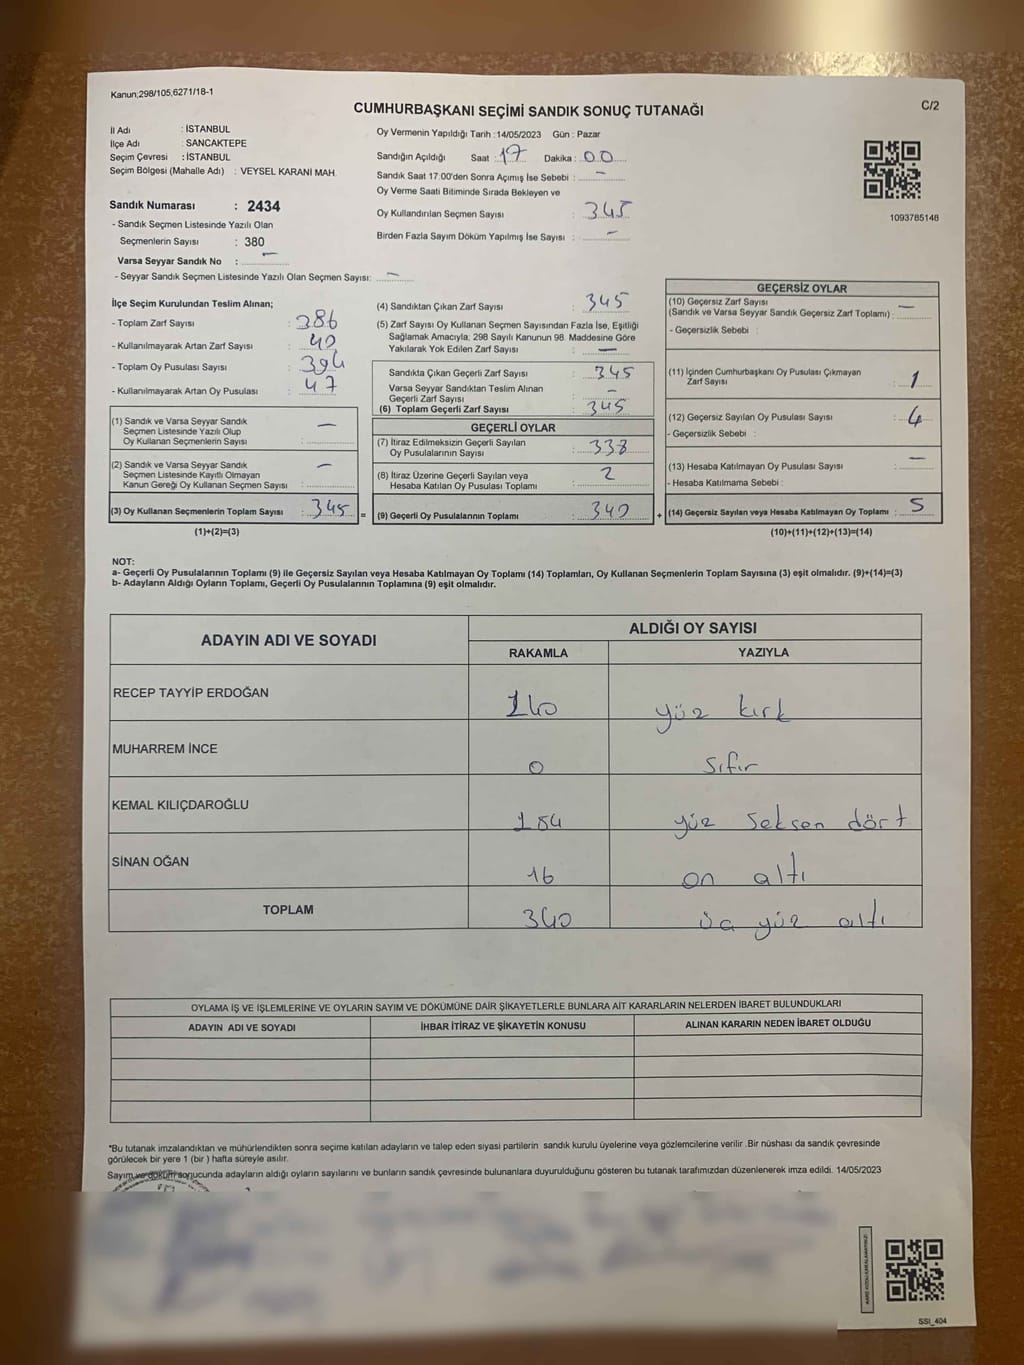 Kanun;298/105,6271/18-1
C/2
CUMHURBAŞKANI SEÇİMİ SANDIK SONUÇ TUTANAĞI
İl Adı : İSTANBUL
İlçe Adı : SANCAKTEPE
Seçim Çevresi : İSTANBUL
Seçim Bölgesi (Mahalle Adı) : VEYSEL KARANİ MAH.
Sandık Numarası : 2434
- Sandık Seçmen Listesinde Yazılı Olan
Seçmenlerin Sayısı : 380
Varsa Seyyar Sandık No : —
- Seyyar Sandık Seçmen Listesinde Yazılı Olan Seçmen Sayısı: —
Oy Vermenin Yapıldığı Tarih :14/05/2023 Gün : Pazar
Sandığın Açıldığı Saat : 17 Dakika : 00
Sandık Saat 17.00'den Sonra Açımış İse Sebebi : —
Oy Verme Saati Bitiminde Sırada Bekleyen ve
Oy Kullandırılan Seçmen Sayısı : 345
Birden Fazla Sayım Döküm Yapılmış İse Sayısı : —
1093785148
İlçe Seçim Kurulundan Teslim Alınan;
- Toplam Zarf Sayısı : 386
- Kullanılmayarak Artan Zarf Sayısı : 40
- Toplam Oy Pusulası Sayısı : 394
- Kullanılmayarak Artan Oy Pusulası : 47
(1) Sandık ve Varsa Seyyar Sandık
Seçmen Listesinde Yazılı Olup
Oy Kullanan Seçmenlerin Sayısı : —
(2) Sandık ve Varsa Seyyar Sandık
Seçmen Listesinde Kayıtlı Olmayan
Kanun Gereği Oy Kullanan Seçmen Sayısı : —
(3) Oy Kullanan Seçmenlerin Toplam Sayısı : 345 =
(1)+(2)=(3)
(4) Sandıktan Çıkan Zarf Sayısı : 345
(5) Zarf Sayısı Oy Kullanan Seçmen Sayısından Fazla İse, Eşitliği
Sağlamak Amacıyla; 298 Sayılı Kanunun 98. Maddesine Göre
Yakılarak Yok Edilen Zarf Sayısı : —
Sandıkta Çıkan Geçerli Zarf Sayısı : 345
Varsa Seyyar Sandıktan Teslim Alınan
Geçerli Zarf Sayısı : —
(6) Toplam Geçerli Zarf Sayısı : 345
GEÇERLİ OYLAR
(7) İtiraz Edilmeksizin Geçerli Sayılan
Oy Pusulalarının Sayısı : 338
(8) İtiraz Üzerine Geçerli Sayılan veya
Hesaba Katılan Oy Pusulası Toplamı : 2
(9) Geçerli Oy Pusulalarının Toplamı : 340 +
GEÇERSİZ OYLAR
(10) Geçersiz Zarf Sayısı
(Sandık ve Varsa Seyyar Sandık Geçersiz Zarf Toplamı) : —
- Geçersizlik Sebebi :
(11) İçinden Cumhurbaşkanı Oy Pusulası Çıkmayan
Zarf Sayısı : 1
(12) Geçersiz Sayılan Oy Pusulası Sayısı : 4
- Geçersizlik Sebebi :
(13) Hesaba Katılmayan Oy Pusulası Sayısı : —
- Hesaba Katılmama Sebebi :
(14) Geçersiz Sayılan veya Hesaba Katılmayan Oy Toplamı : 5
(10)+(11)+(12)+(13)=(14)
NOT:
a- Geçerli Oy Pusulalarının Toplamı (9) ile Geçersiz Sayılan veya Hesaba Katılmayan Oy Toplamı (14) Toplamları, Oy Kullanan Seçmenlerin Toplam Sayısına (3) eşit olmalıdır. (9)+(14)=(3)
b- Adayların Aldığı Oyların Toplamı, Geçerli Oy Pusulalarının Toplamına (9) eşit olmalıdır.
ADAYIN ADI VE SOYADI
ALDIĞI OY SAYISI
RAKAMLA YAZIYLA
RECEP TAYYİP ERDOĞAN 140 yüz kırk
MUHARREM İNCE 0 sıfır
KEMAL KILIÇDAROĞLU 184 yüz seksen dört
SİNAN OĞAN 16 on altı
TOPLAM 340 üç yüz altı
OYLAMA İŞ VE İŞLEMLERİNE VE OYLARIN SAYIM VE DÖKÜMÜNE DAİR ŞİKAYETLERLE BUNLARA AİT KARARLARIN NELERDEN İBARET BULUNDUKLARI
ADAYIN ADI VE SOYADI İHBAR İTİRAZ VE ŞİKAYETİN KONUSU ALINAN KARARIN NEDEN İBARET OLDUĞU
*Bu tutanak imzalandıktan ve mühürlendikten sonra seçime katılan adayların ve talep eden siyasi partilerin sandık kurulu üyelerine veya gözlemcilerine verilir .Bir nüshası da sandık çevresinde
görülecek bir yere 1 (bir ) hafta süreyle asılır.
Sayım ve döküm sonucunda adayların aldığı oyların sayılarını ve bunların sandık çevresinde bulunanlara duyurulduğunu gösteren bu tutanak tarafımızdan düzenlenerek imza edildi. 14/05/2023
SSI_404